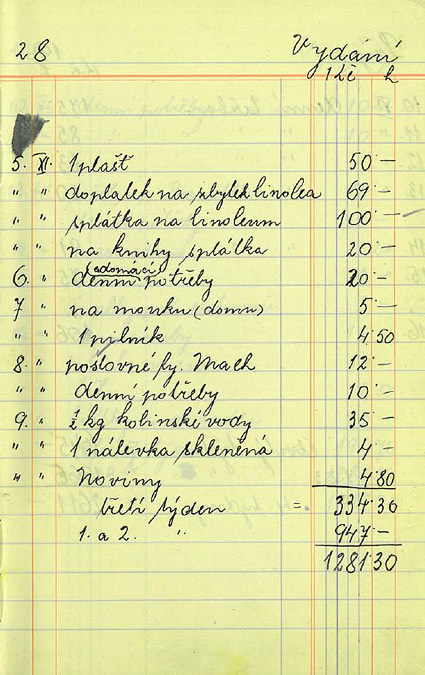 28 Vydání
Kč h
5. XI. 1 plášť 50·—
" " doplatek na zbytek linolea 69·—
" " splátka na linoleum 100·—
" " na knihy splátka 20·—
(a domácí)
6. " denní potřeby 20·—
7 " na mouku (domu) 5·—
" " 1 pilník 4·50
8. " poslovné fy. Mach 12·—
" denní potřeby 10·—
9. " ½ kg kolínské vody 35·—
" " 1 nálevka skleněná 4·—
" " Noviny 4·80
třetí týden =. 334·30
1. a 2. " 947·—
1281·30